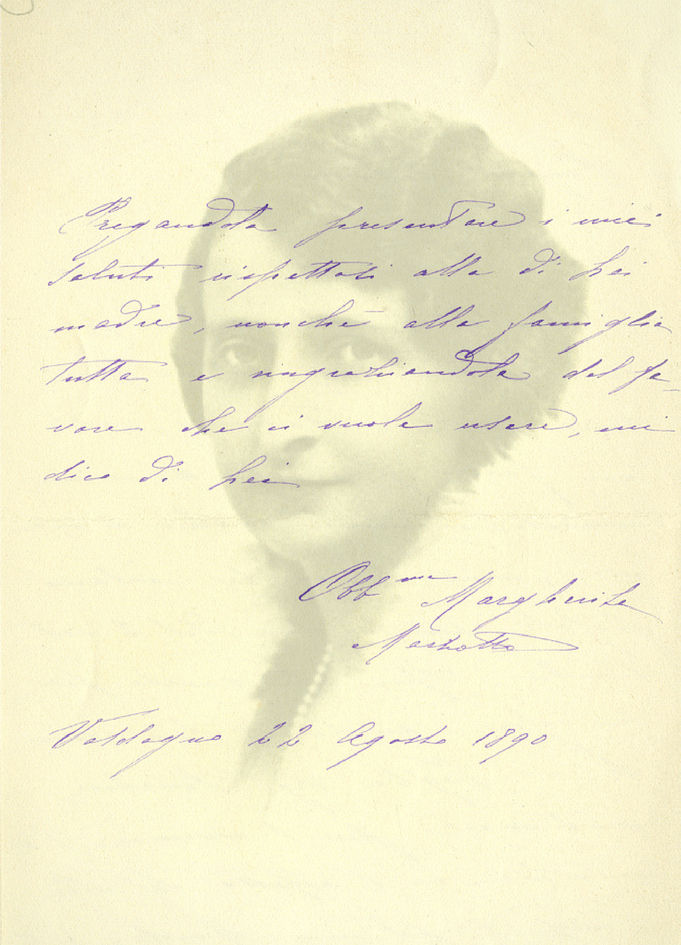 Pregandola presentare i miei
saluti rispettosi alla di Lei
madre, nonchè alla famiglia
tutta e ringraziandola del fa-
vore che ci vuole usare, mi
dico di Lei
Obb.ma Margherita
Marzotto
Valdagno 22 Agosto 1890